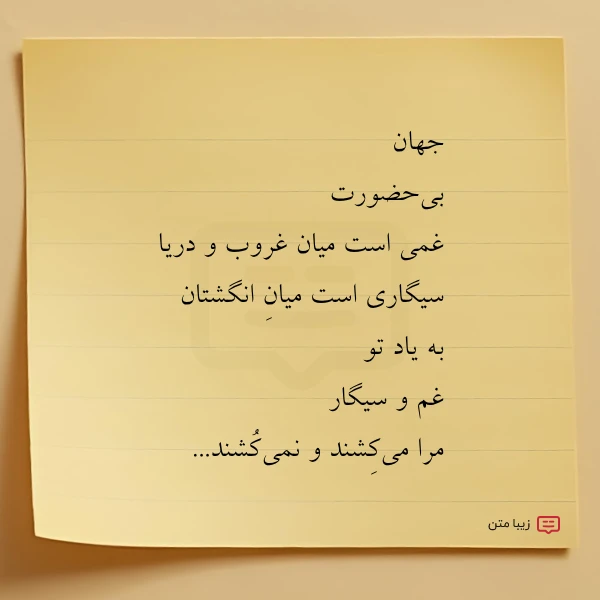 جهان
بی‌حضورت
غمی است میان غروب و دریا
سیگاری است میانِ انگشتان
به یاد تو
غم و سیگار
مرا می‌کِشند و نمی‌کُشند...
زیبا متن